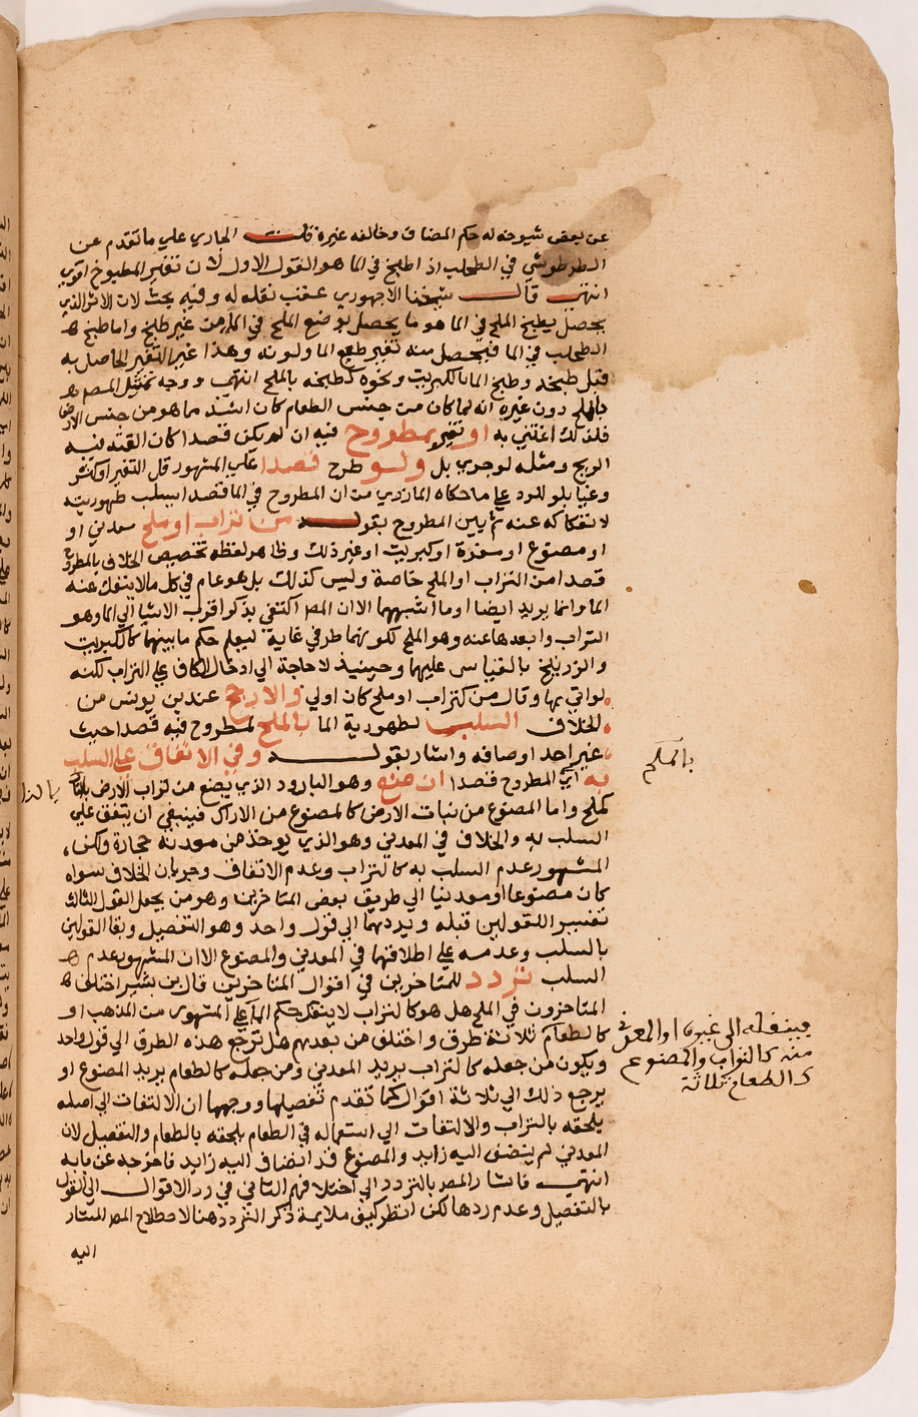 عن بعض شيوخه له حكم المضاف وخالفه غيره قلت الجاري علي ما تقدم عن
الطرطوشي في الطحلب اذا طبخ في الما هو القول الاول لان تغير المطبوخ اقوي
انتهي قال شيخنا الاجهوري عقب نقله له وفيه بحث لان الاثر الذي
يحصل بطبخ الملح في الما هو ما يحصل بوضع الملح في الما من غير طبخ واما طبخ
الطحلب في الما فيحصل منه تغير طعم الما ولونه وهذا غير التغير الحاصل به
قبل طبخه وطبخ الما بالكبريت ونحوه كطبخه بالملح انتهي ووجه تمثيل المص
بالملح دون غيره انه لما كان من جنس الطعام كان اشد مما هو من جنس الارض
فلذلك اعتني به او تغير بمطروح فيه ان لم يكن قصدا كان القته فيه
الريح ومثله لوجري بل ولو طرح قصدا علي المشهور قل التغير او كثر
وعيا بلو للرد علي ما حكاه المازري من ان المطروح في الما قصدا يسلب طهوريته
لانفكاكه عنه ثم بين المطروح بقوله من تراب او ملح معدني او
او مصنوع او مغرة او كبريت او غير ذلك وظاهر لفظه تخصيص الخلاف بالمطروح
قصدا من التراب او الملح خاصة وليس كذلك بل هو عام في كل ما لا ينفك عنه
الما وانما يريد ايضا او ما اشبههما الا ان المص اكتفي بذكر اقرب الاشيا الي الما وهو
التراب وابعدها عنه وهو الملح لكونهما طرفي غاية ليعلم حكم ما بينهما كالكبريت
والزرنيخ بالقياس عليهما وحينيذ لا حاجة الي ادخال الكاف علي التراب لكنه
لو اتي بها وقال من كتراب او ملح كان اولي والارجح عند بن يونس من
الخلاف السلب لطهورية الما بالملح لمطروح فيه قصدا حيث
غير احد اوصافه واشار بقوله وفي الاتفاق علي السلب
به اي المطروح قصدا ان صنع وهو البارود الذي يصنع من تراب الارض بالنار
كملح واما المصنوع من نبات الارض كالمصنوع من الاراك فينبغي ان يتفق علي
السلب به والخلاف في المعدني وهو الذي يوخذ من معدنه حجارة ولكن
المشهور عدم السلب به كالتراب وعدم الاتفاق وجريان الخلاف سواه
كان مصنوعا او معدنيا الي طريق بعض المتاخرين وهو من يجعل القول الثالث
تفسير للقولين قبله ويردهما الي قول واحد وهو التفصيل وبقا القولين
بالسلب وعدمه علي اطلاقهما في المعدني والمصنوع الا ان المشهور عدم
السلب تردد للمتاخرين في اقوال المتاخرين قال بن بشير اختلف
المتاخرون في الملح هل هو كالتراب لا ينقل حكم الما علي المشهور من المذهب او
كالطعام ثلاثة طرق واختلف من بعدهم هل ترجع هذه الطرق الي قول واحد
ويكون من جعله كالتراب يريد المعدني ومن جعله كالطعام يريد المصنوع او
يرجع ذلك الي ثلاثة اقوال كما تقدم تفصيلها ووجهها ان الالتفات الي اصله
يلحقه بالتراب والالتفات الي استعماله في الطعام يلحقه بالطعام والتفصيل لان
المعدني لم ينضف اليه زايد والمصنوع قد انضاف اليه زايد فاخرجه عن بابه
انتهي فاشار المص بالتردد الي اختلافهم الثاني في رد الاقوال الي القول
بالتفصيل وعدم ردها لكن انظر كيف ملايمة ذكر التردد هنا لاصطلاح المص المشار
اليه
بالحكم
بالنار
فينقله الي غيره او المعدني
منه كالتراب والمصنوع
كالطعام ثلاثة